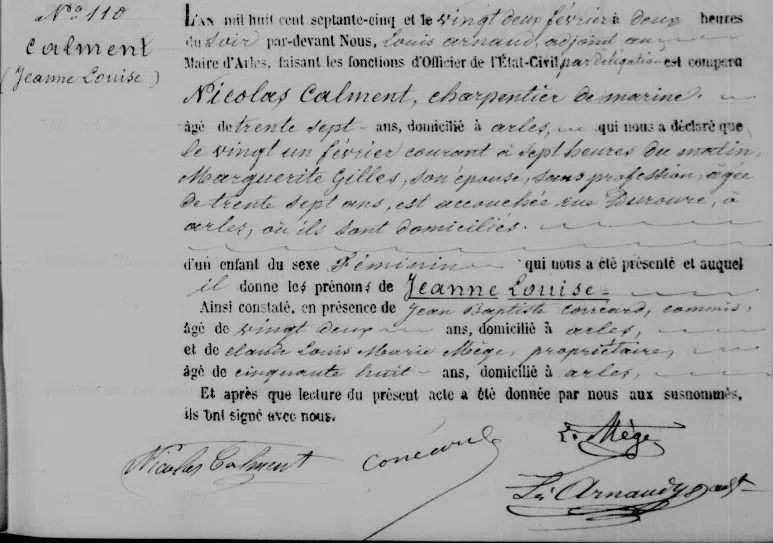 N° 110
Calment
(Jeanne Louise)
L'AN mil huit cent septante-cinq et le vingt deux février à deux heures
du soir par-devant Nous, Louis Arnaud, adjoint au
Maire d'Arles, faisant les fonctions d'Officier de l'État-Civil par délégation est comparu
Nicolas Calment, charpentier de marine
âgé de trente sept ans, domicilié à arles, qui nous a déclaré que
le vingt un février courant à sept heures du matin,
Marguerite Gilles, son épouse, sans profession, âgée
de trente sept ans, est accouchée rue Duroure, à
arles, où ils sont domiciliés.
d'un enfant du sexe Féminin qui nous a été présenté et auquel
il donne les prénoms de Jeanne Louise
Ainsi constaté, en présence de Jean Baptiste Corréard, commis,
âgé de vingt deux ans, domicilié à arles,
et de claude Louis Marie Mège, propriétaire,
âgé de cinquante huit ans, domicilié à arles,
Et après que lecture du présent acte a été donnée par nous aux susnommés,
ils ont signé avec nous.
L. Mège
Nicolas Calment Corréard
Ls Arnaud